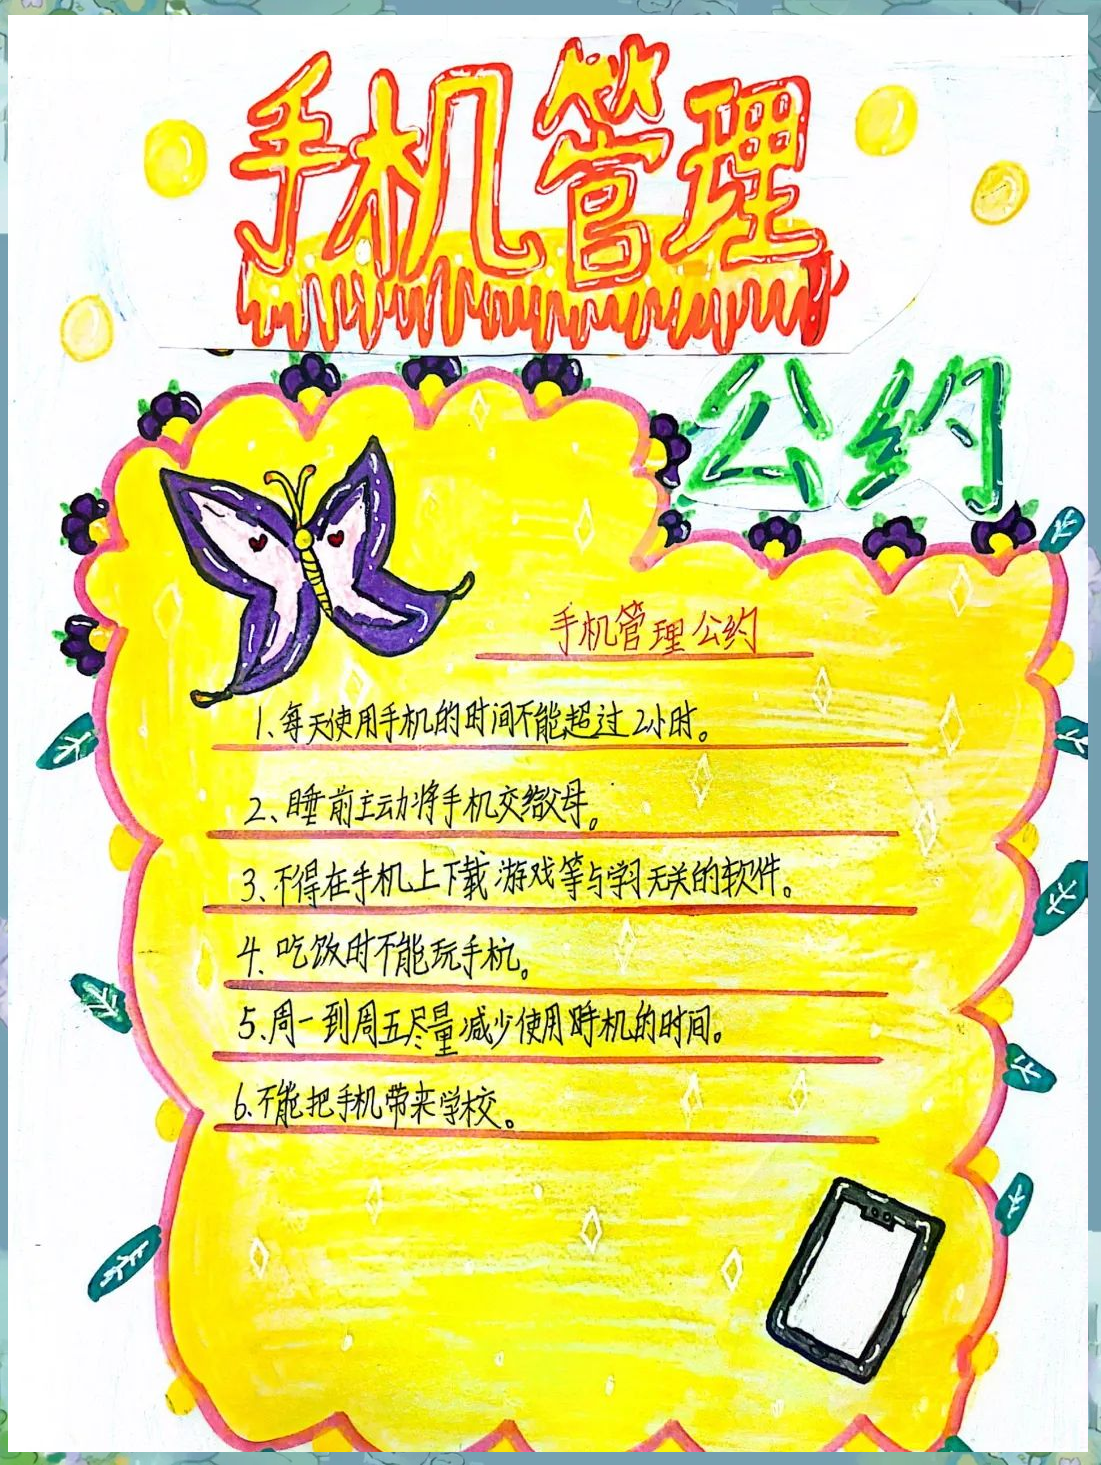 手机管理
公约
手机管理公约
1、每天使用手机的时间不能超过2小时。
2、睡前主动将手机交给父母。
3、不得在手机上下载游戏等与学习无关的软件。
4、吃饭时不能玩手机。
5、周一到周五尽量减少使用手机的时间。
6、不能把手机带来学校。